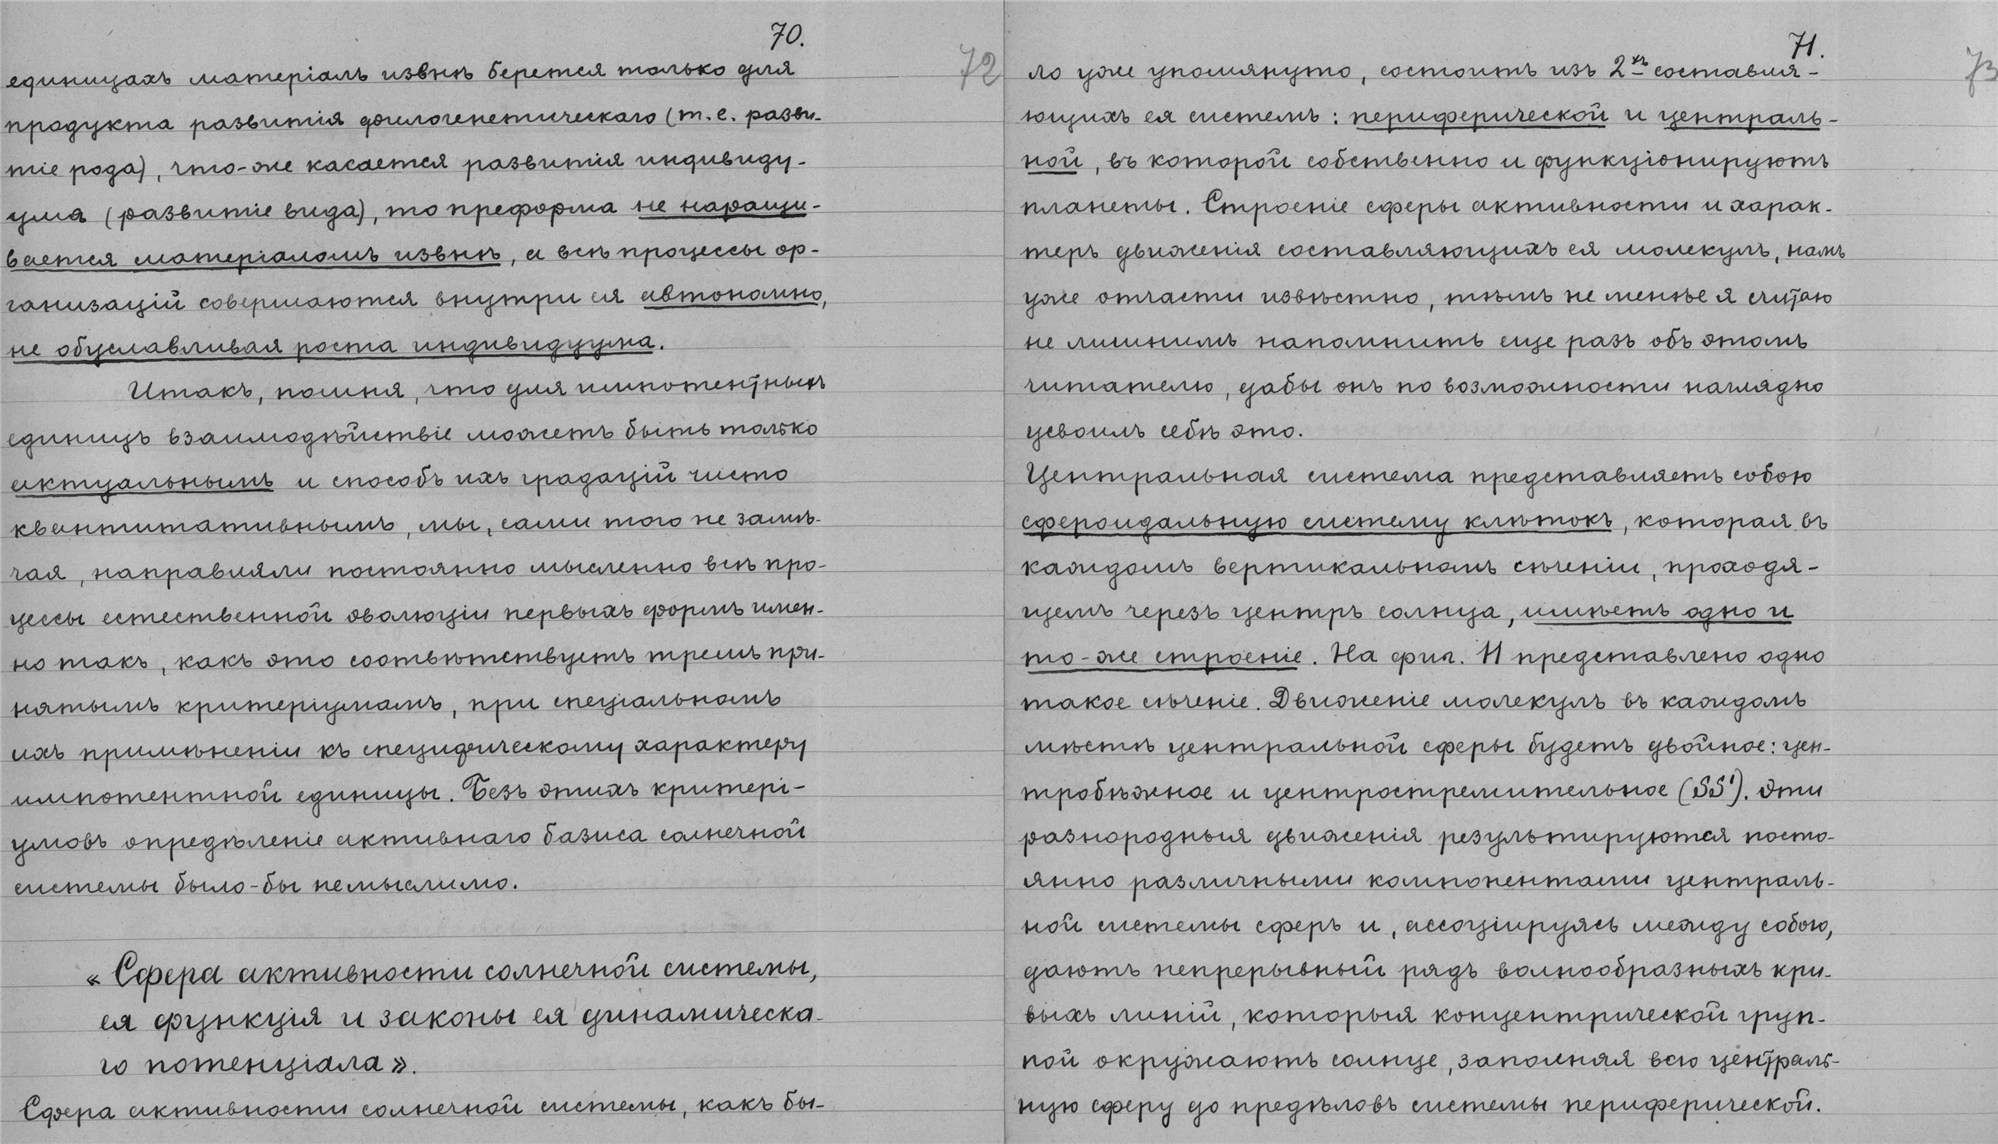 70.
72
единицахъ матеріалъ извнѣ берется только для
продукта развитія филогенетическаго (т. е. разви-
тіе рода), что-же касается развитія индивиду-
ума (развитіе вида), то преформа не наращи-
вается матеріаломъ извнѣ, а всѣ процессы ор-
ганизацій совершаются внутри ея автономно,
не обуславливая роста индивидуума.
Итакъ, помня, что для импотентныхъ
единицъ взаимодѣйствіе можетъ быть только
актуальнымъ и способъ ихъ градацій чисто
квантитативнымъ, мы, сами того не замѣ-
чая, направляли постоянно мысленно всѣ про-
цессы естественной эволюціи первыхъ формъ имен-
но такъ, какъ это соотвѣтствуетъ тремъ при-
нятымъ критеріумамъ, при спеціальномъ
ихъ примѣненіи къ специфическому характеру
импотентной единицы. Безъ этихъ критері-
умовъ опредѣленіе активнаго базиса солнечной
системы было-бы немыслимо.
«Сфера активности солнечной системы,
ея функція и законы ея динамическа-
го потенціала».
Сфера активности солнечной системы, какъ бы-
71.
73
ло уже упомянуто, состоитъ изъ 2хъ составля-
ющихъ ея системъ: периферической и централь-
ной, въ которой собственно и функціонируютъ
планеты. Строеніе сферы активности и харак-
теръ движенія составляющихъ ея молекулъ, намъ
уже отчасти извѣстно, тѣмъ не менѣе я считаю
не лишнимъ напомнить еще разъ объ этомъ
читателю, дабы онъ по возможности наглядно
усвоилъ себѣ это.
Центральная система представляетъ собою
сфероидальную систему клѣтокъ, которая въ
каждомъ вертикальномъ сѣченіи, проходя-
щемъ черезъ центръ солнца, имѣетъ одно и
то-же строеніе. На фиг. 11 представлено одно
такое сѣченіе. Движеніе молекулъ въ каждомъ
мѣстѣ центральной сферы будетъ двойное: цен-
тробѣжное и центростремительное (SS'). Эти
разнородныя движенія результируются посто-
янно различными компонентами централь-
ной системы сферъ и, ассоціируясь между собою,
даютъ непрерывный рядъ волнообразныхъ кри-
выхъ линій, которыя концентрической груп-
пой окружаютъ солнце, заполняя всю централь-
ную сферу до предѣловъ системы периферической.